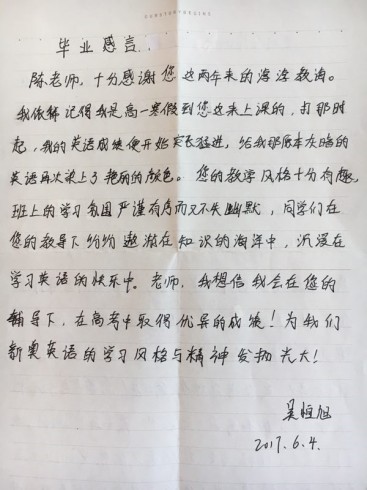 毕业感言.
陈老师，十分感谢您这两年来的谆谆教诲。
我依稀记得我是高一寒假到您这来上课的，从那时
起，我的英语成绩便开始突飞猛进，给我那原本灰暗的
英语再次染上了艳丽的颜色。您的教学风格十分有趣，
班上的学习氛围严谨有序而又不失幽默，同学们在
您的教导下纷纷遨游在知识的海洋中，沉浸在
学习英语的快乐中。老师，我想信我会在您的
辅导下，在高考中取得优异的成绩！为我们
新奥英语的学习风格与精神发扬光大！
吴恒旭
2017.6.4.